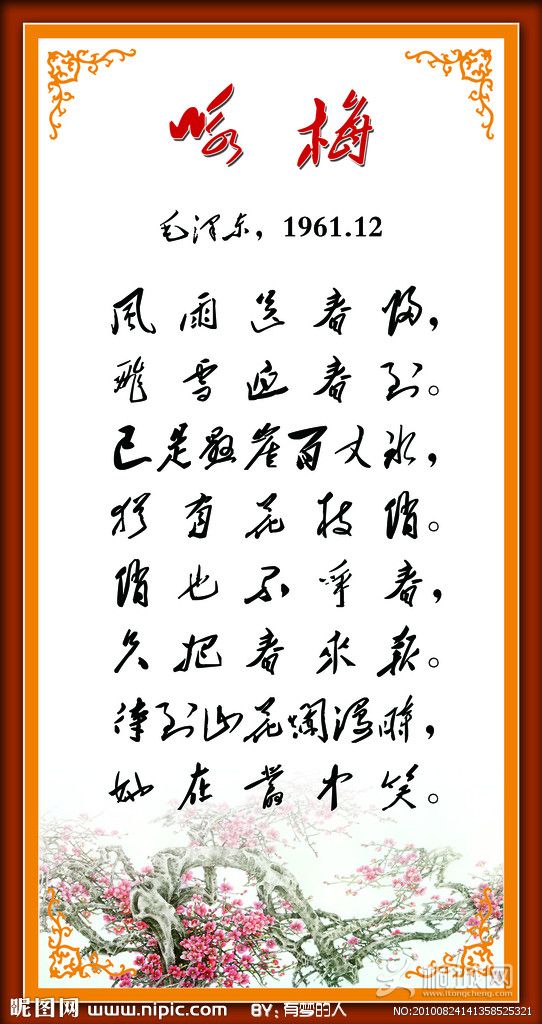 咏梅
毛泽东，1961.12
風雨送春歸，
飛雪迎春到。
已是懸崖百丈冰，
犹有花枝俏。
俏也不争春，
只把春來報。
待到山花爛漫時，
她在叢中笑。
昵图网 www.nipic.com BY：有梦的人 NO:20100824141358525321